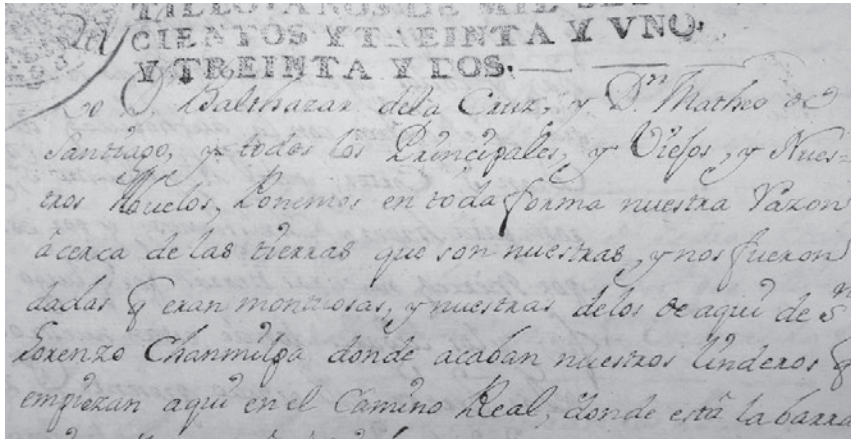 TILLO, AÑOS DE MIL SETE
CIENTOS Y TREINTA Y VNO.
Y TREINTA Y DOS.
Yo D. Balthazar dela Cruz, y D.n Matheo de
Santiago, y todos los Principales, y Viejos, y Nues-
tros Abuelos, Ponemos en toda forma nuestra razon
acerca de las tierras que son nuestras, y nos fueron
dadas q eran montuosas, y nuestras delos de aqui de S.n
Lorenzo Chanmilpa donde acaban nuestros linderos q
empiezan aqui en el Camino Real, donde está la barra